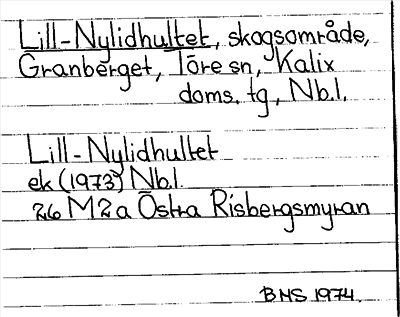 Lill-Nylidhultet, skogsområde,
Granberget, Töre sn, Kalix
doms. tg, Nb.l.
Lill-Nylidhultet
ek (1973) Nb.l.
26 M 2 a Östra Risbergsmyran
BMS 1974.